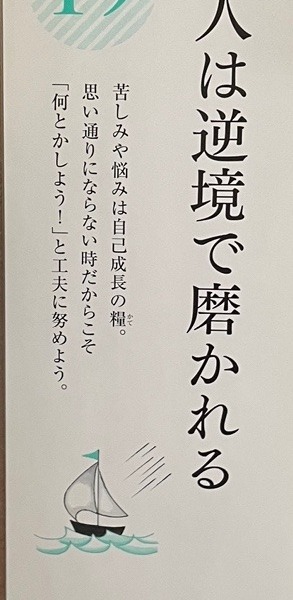 人は逆境で磨かれる
苦しみや悩みは自己成長の糧。
かて
思い通りにならない時だからこそ
「何とかしよう！」と工夫に努めよう。